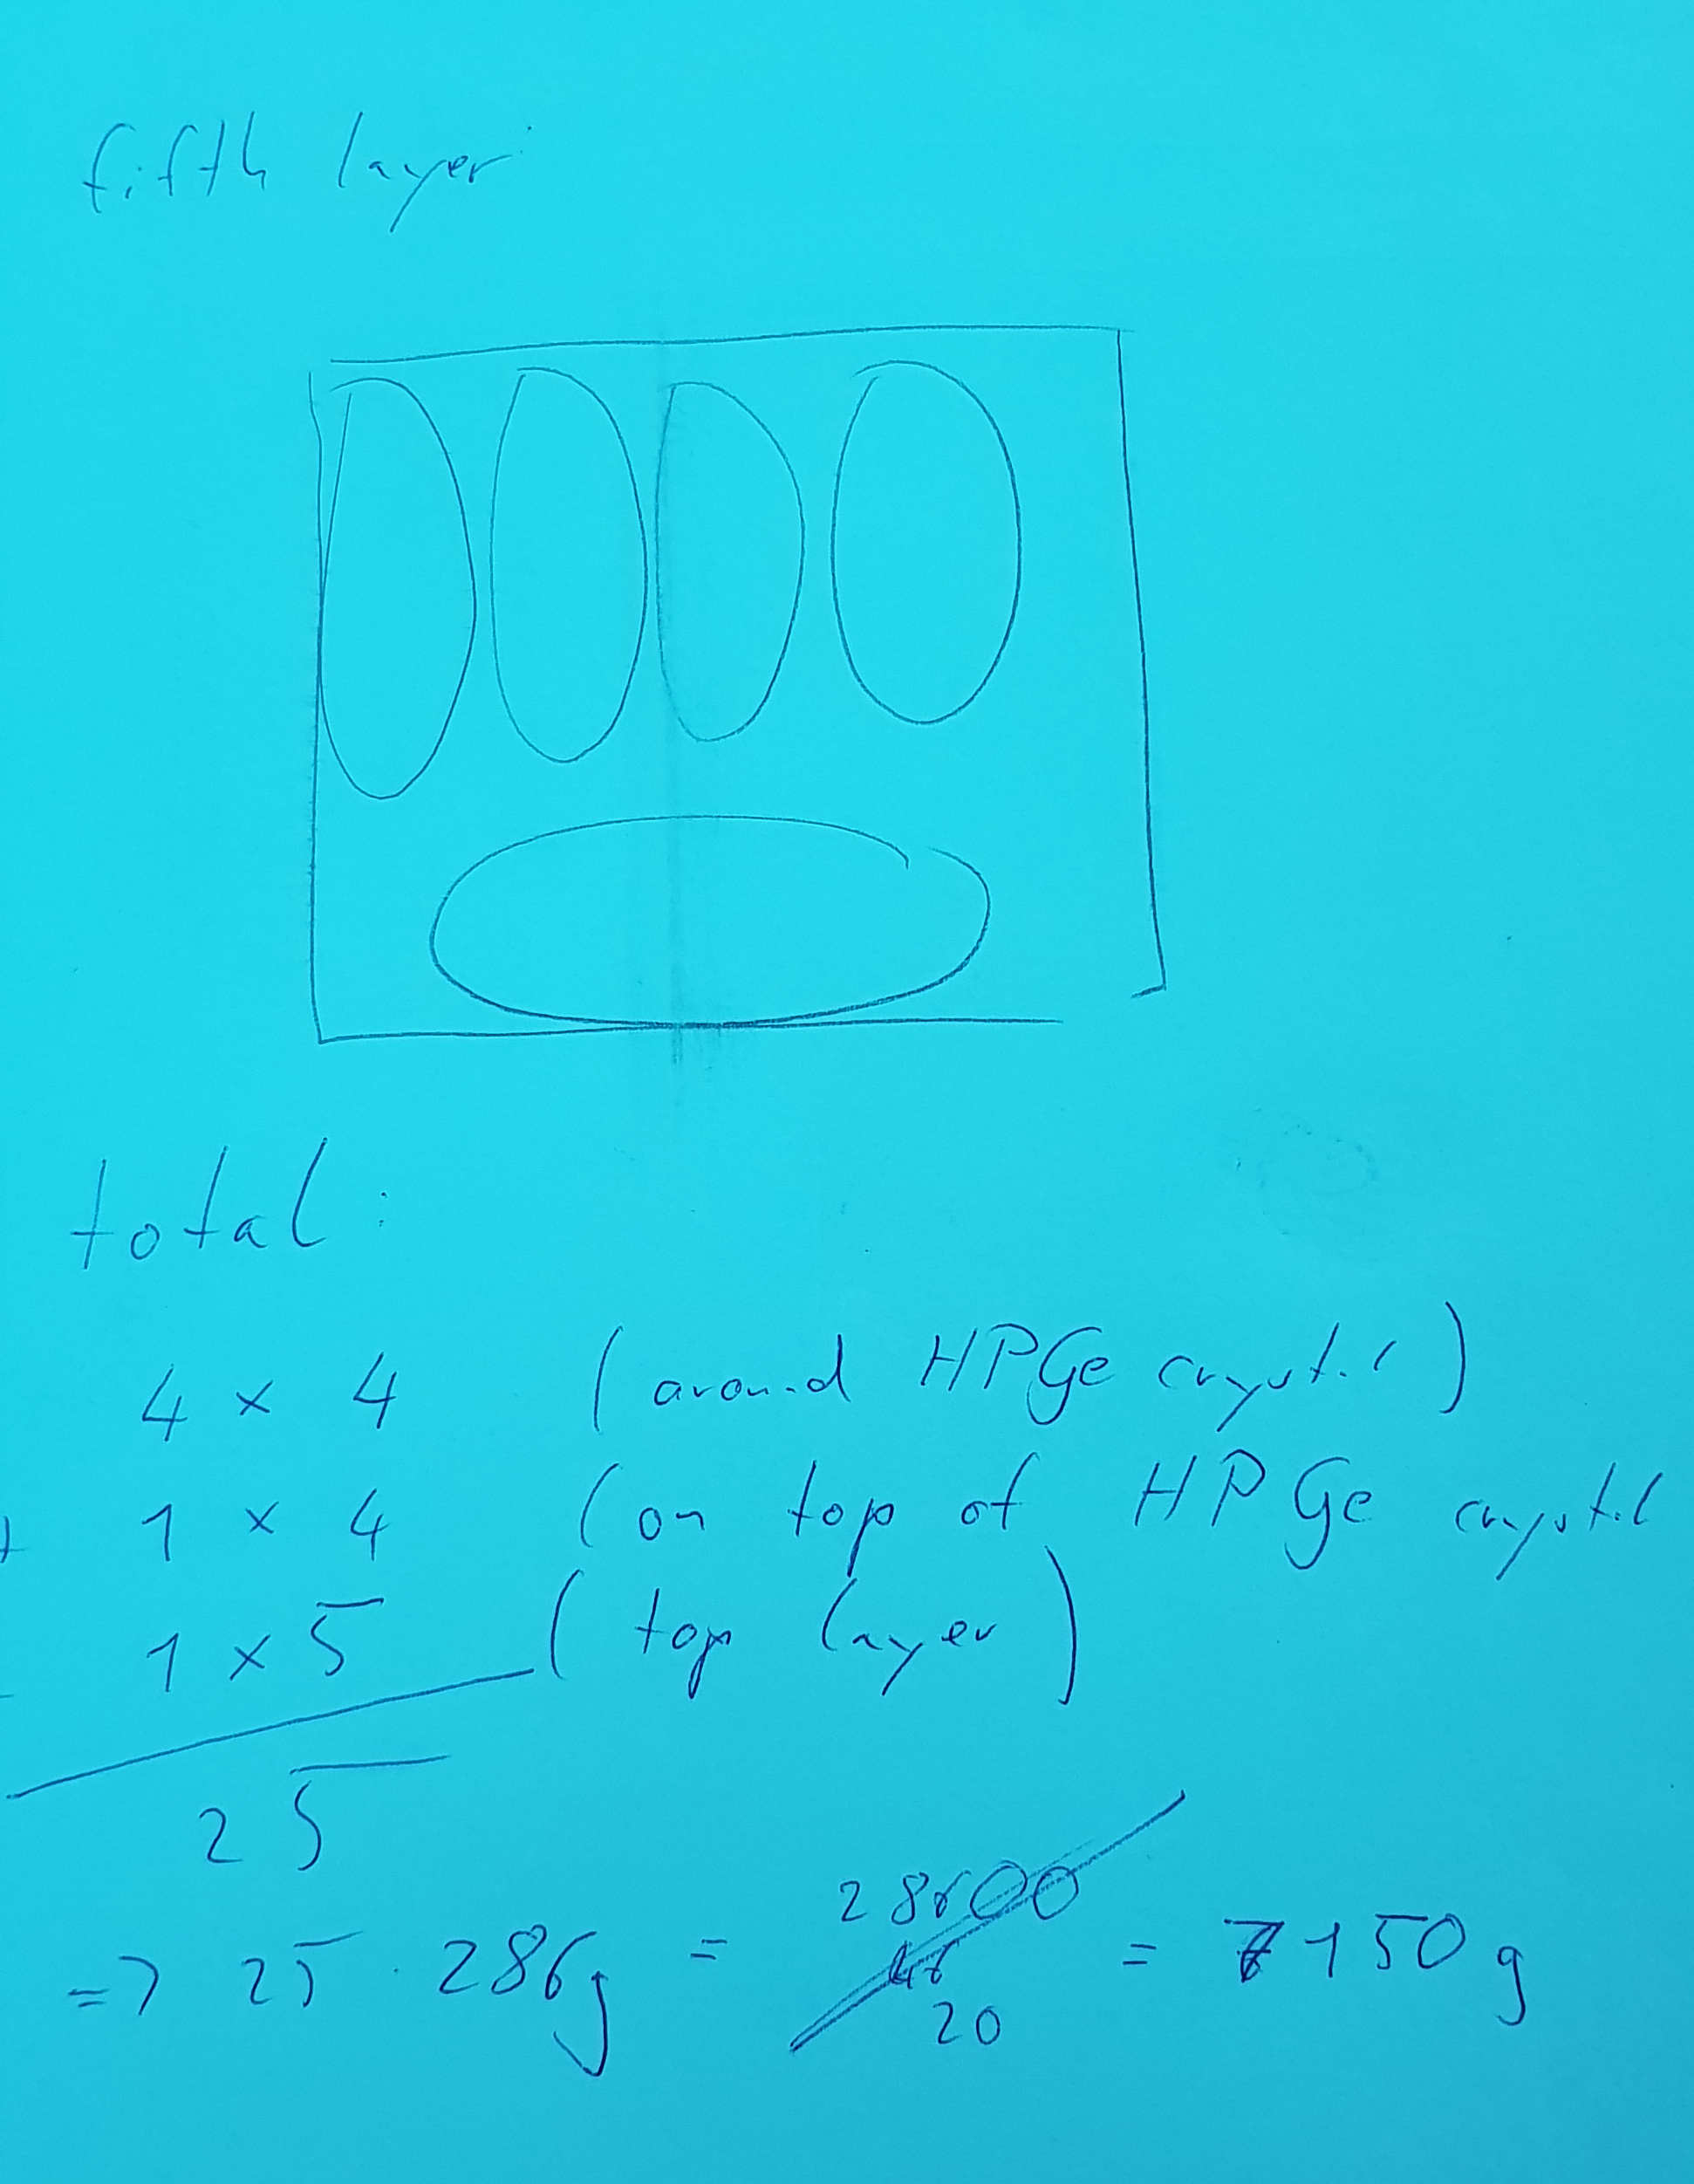 fifth layer
total:
4 × 4 (around HPGe crystal)
+ 1 × 4 (on top of HPGe crystal
1 × 5 (top layer)
25
28600
=> 25 · 286g = = 7150 g
20